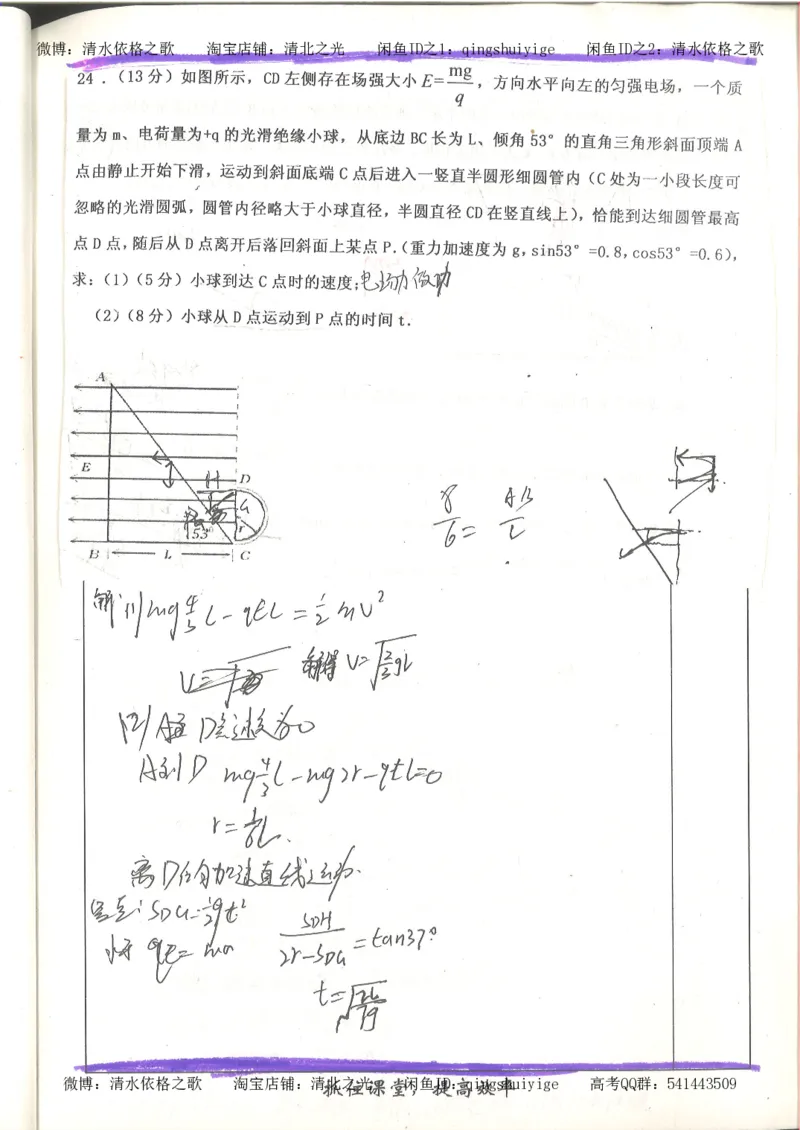 微博：清水依格之歌 淘宝店铺：清北之光 闲鱼ID之1：qingshuiyige 闲鱼ID之2：清水依格之歌
24．（13分）如图所示，CD左侧存在场强大小E=mg/q，方向水平向左的匀强电场，一个质
量为m、电荷量为+q的光滑绝缘小球，从底边BC长为L、倾角53°的直角三角形斜面顶端A
点由静止开始下滑，运动到斜面底端C点后进入一竖直半圆形细圆管内（C处为一小段长度可
忽略的光滑圆弧，圆管内径略大于小球直径，半圆直径CD在竖直线上），恰能到达细圆管最高
点D点，随后从D点离开后落回斜面上某点P.（重力加速度为g，sin53°=0.8，cos53°=0.6），
求：（1）（5分）小球到达C点时的速度；电场力做功
（2）（8分）小球从D点运动到P点的时间t.
A
E
H D
G
r
53°
B L C
8/6=AB/L
解(1) mg4/3L-qEL=1/2mv²
解得 V=√2/3gL
(2)
A到D mg4/3L-mg2r-qEL=0
r=1/6L.
离D后匀加速直线运动.
SDG=1/2gt²
水平 qE=ma SDH/2r-SDG=tan37°
微博：清水依格之歌 淘宝店铺：清北之光 闲鱼ID：qingshuiyige 高考QQ群：541443509
抓住课堂，提高效率